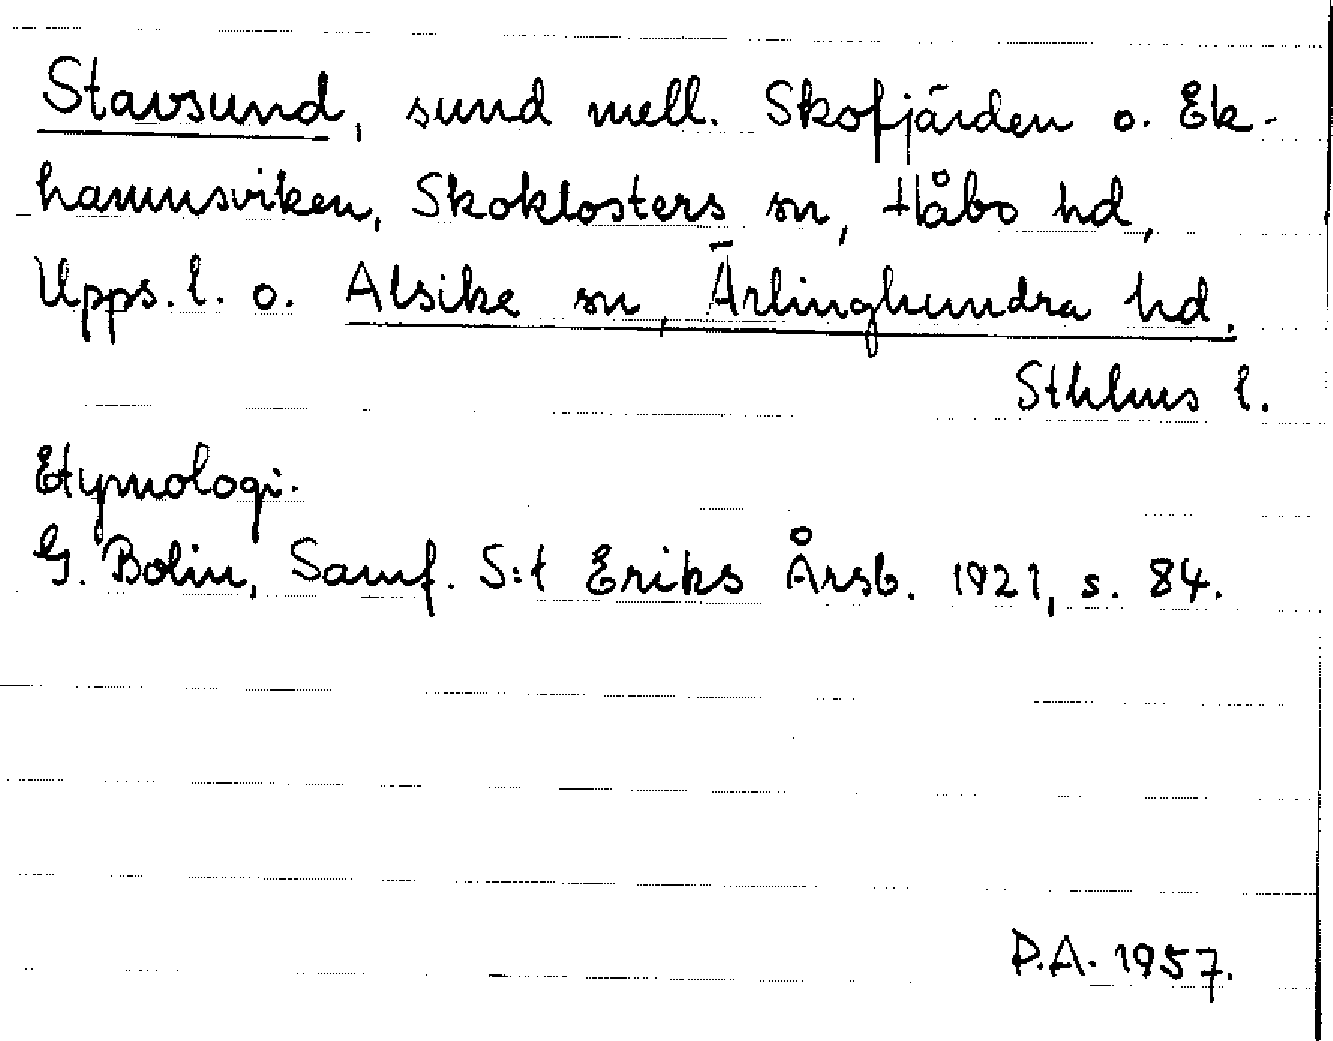 Stavsund, sund mell. Skofjärden o. Ek-
hamnsviken, Skoklosters sn, Håbo hd,
Upps. l. o. Alsike sn, Ärlinghundra hd.
Sthlms l.
Etymologi.
G. Bolin, Samf. S:t Eriks Årsb. 1921, s. 84.
P.A. 1957.